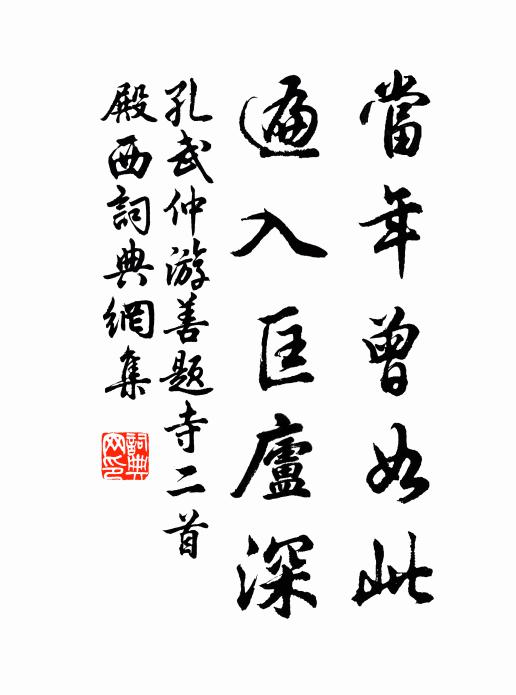 當年曾如此
遍入匡廬深
孔武仲游善題寺二首
殿西詞典網集
詞典
网印